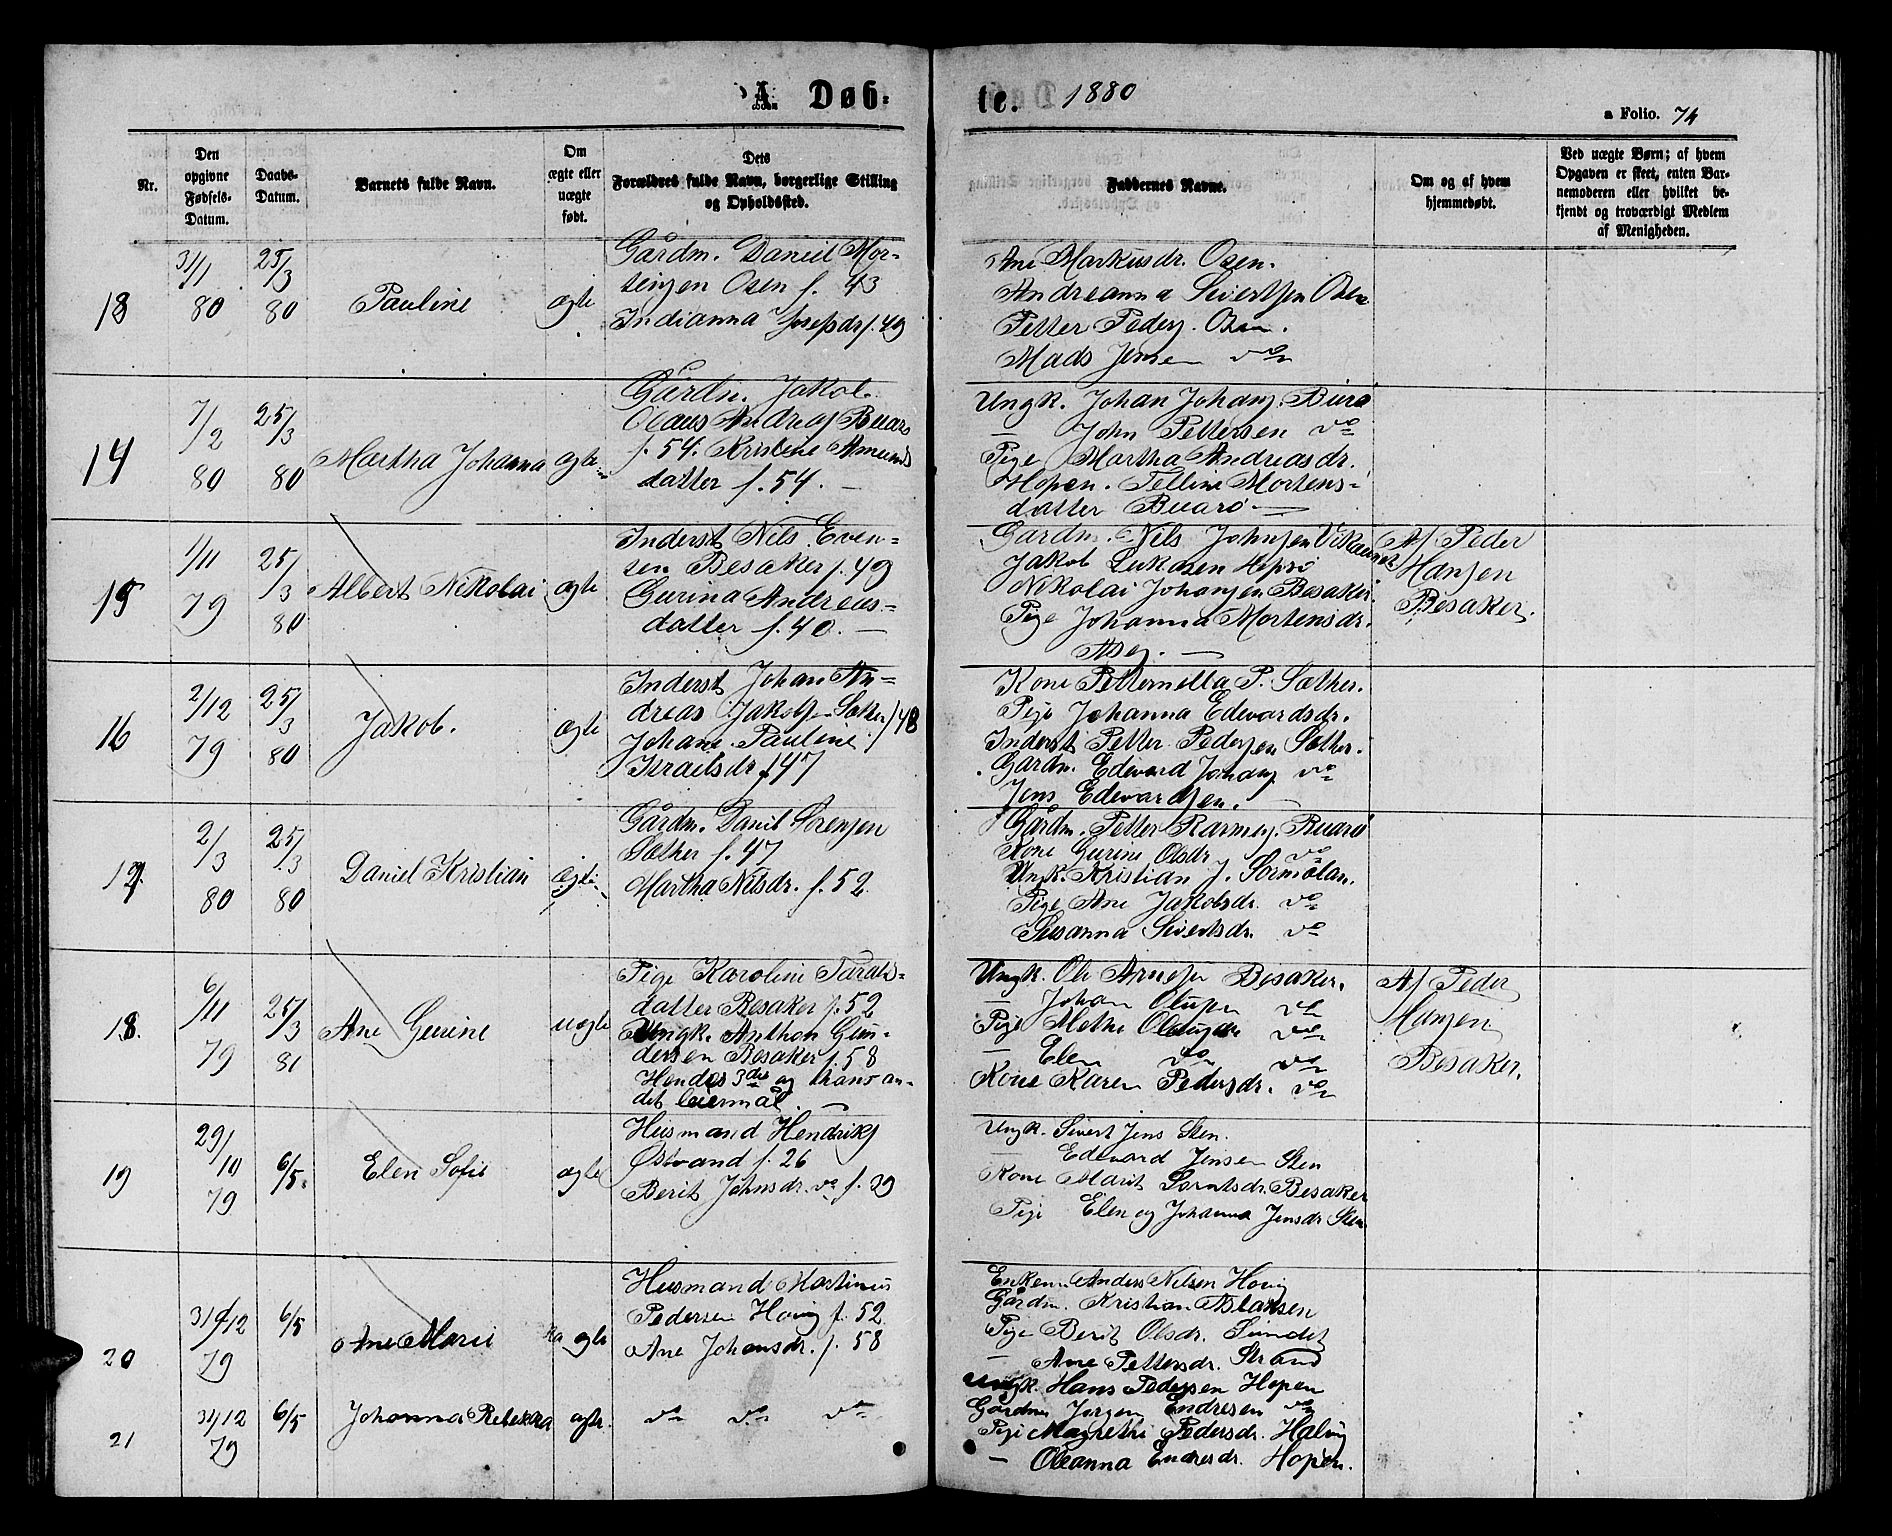 A. Døb-
te. 1880
a Folio. 74
Nr.
Den opgivne Fødsels-Datum.
Daabs-Datum.
Barnets fulde Navn.
Om ægte eller uægte født.
Dets Forældres fulde Navn, borgerlige Stilling og Opholdssted.
Faddernes Navne.
Om og af hvem hjemmedøbt.
Ved uægte Børn; af hvem Opgaven er skeet, enten Barnemoderen eller hvilket bekjendt og troværdigt Medlem af Menigheden.
13
31/1 80
25/3 80
Pauline
ægte
Gårdm. Daniel Mor-
tensen Osen f. 43
Indianna Josefsdr f. 49
Ane Markusdr. Osen.
Andreanna Sivertsen Osen
Petter Peders. Osen.
Mads Jensen do
14
7/2 80
25/3 80
Martha Johanna
ægte
Gårdm. Jakob
Olaus Andreas Buarø
f. 54. Kristine Amunds
datter f. 54. —
Ungk. Johan Johans. Buarø
— John Pettersen do
Pige Martha Andreasdr.
Hopen. Telline Mortens-
datter Buarø —
15
1/11 79
25/3 80
Albert Nikolai
ægte
Inderst Nils Even-
sen Besaker f. 49
Gurina Andreas-
datter f. 40. —
Gårdm. Nils Johnsen
Jakob Lukasen Hepsø
Nikolai Johansen Besaker.
Pige Johanna Mortensdr.
Af Peder
Hansen
Besaker.
16
2/12 79
25/3 80
Jakob.
ægte
Inderst Johan An-
dreas Jakobsen Sæther f 48
Johane Pauline
Israelsdr f 47
Kone Petternella P. Sæther.
Pige Johanna Edevardsdr.
Inderst Petter Pedersen Sæther.
Gårdm. Edevard Johans do
Jens Edevardsen.
17
2/3 80
25/3 80
Daniel Kristian
ægte
Gårdm. Danil Sørensen
Sæther f. 47
Martha Nilsdr. f. 52.
Gårdm. Petter Rasmus. Buarø
Kone Gurine Olsdr do
Ungk. Kristian J. Sørmelan.
Pige Ane Jakobsdr. do
Susanna Sivertsdr. do
18.
6/11 79
25/3 81
Ane Gurine
uægte
Pige Karoline Tarals-
datter Besaker f. 52
Ungk. Anthon Gun-
dersen Besaker f. 58
Hendes 3die og hans an-
det leiermål. —
Ungk. Ole Arnesen Besaker.
— Johan Olusen do
Pige Methe do
— Elen do do
Kone Karen Pedersdr. do
Af Peder
Hansen
Besaker.
19
29/10 79
6/5.
Elen Sofie
ægte
Husmand Hendriks
Østvand f. 26
Berit Johnsdr. do f. 39
Ungk. Sivert Jens Sten.
— Edevard Jensen Sten
Kone Marit Sorntsdr. Besaker
Pige Elen og Johanna Jensdr Sten
20
31/12 79
6/5
Ane Marie
ægte
Husmand Martinus
Pedersen Hovig f. 52.
Ane Johansdr. f. 58
Enkem. Anders Nilsen Hovig
Gårdm. Kristian Blaksen
Pige Berit Olsdr. Sundet
— Ane Pettersdr. Strand
21
31/12 79
6/5
Johanna Rebekka
ægte.
do do do
Ungk. Hans Pedersen Hopen
Gårdm Jørgen Endresen do
Pige Magrethe Pedersdr. Halvig
— Oleanna Endresdr. Hopen.